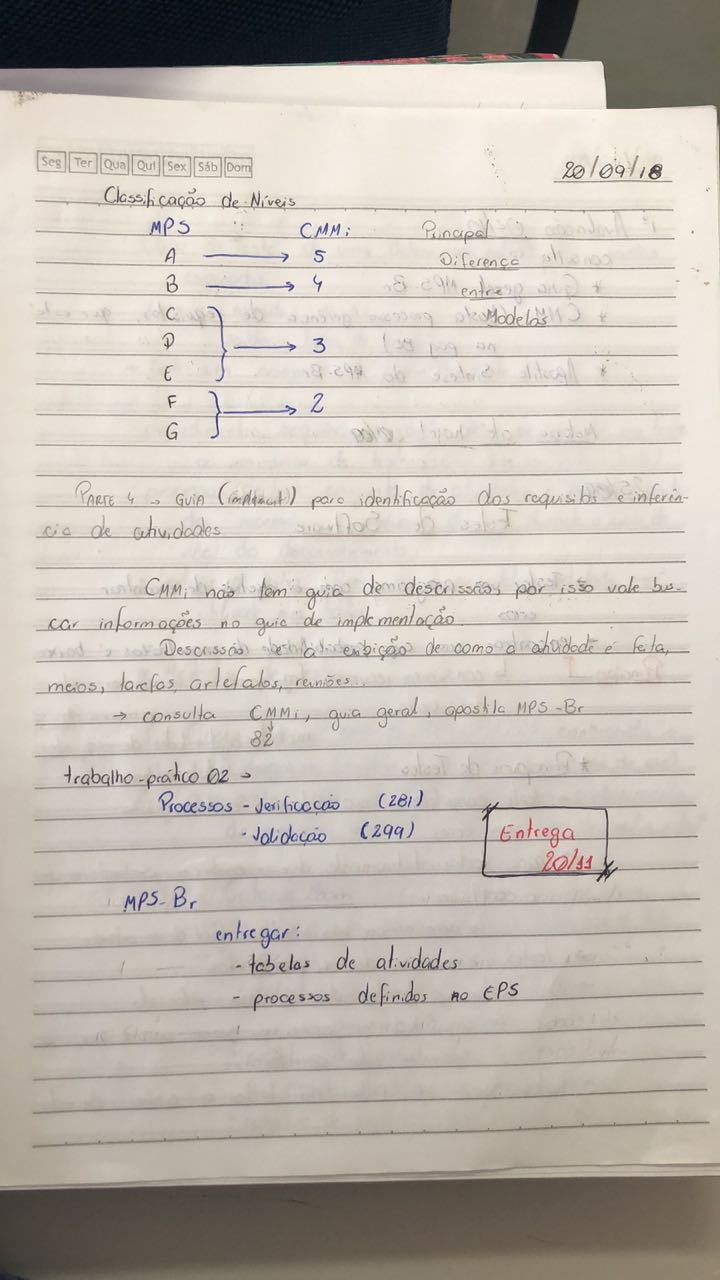 Seg Ter Qua Qui Sex Sáb Dom
20/09/18
Classificação de Níveis
MPS : CMMi Principal
A → 5 Diferença
B → 4 entre
C Modelos
D → 3
E
F → 2
G
PARTE 4 → GUIA (implement) para identificação dos requisitos e inferên-
cia de atividades
CMMi não tem guia de descrissão, por isso vale bus-
car informações no guia de implementação.
Descrissão é a exibição de como a atividade é feita,
meios, tarefas, artefatos, reuniões...
→ consulta CMMi, guia geral, apostila MPS-Br
82
trabalho-prático 02 →
Processos - Verificação (281)
- Validação (299)
Entrega
20/11
MPS-Br
entregar:
- tabelas de atividades
- processos definidos no EPS